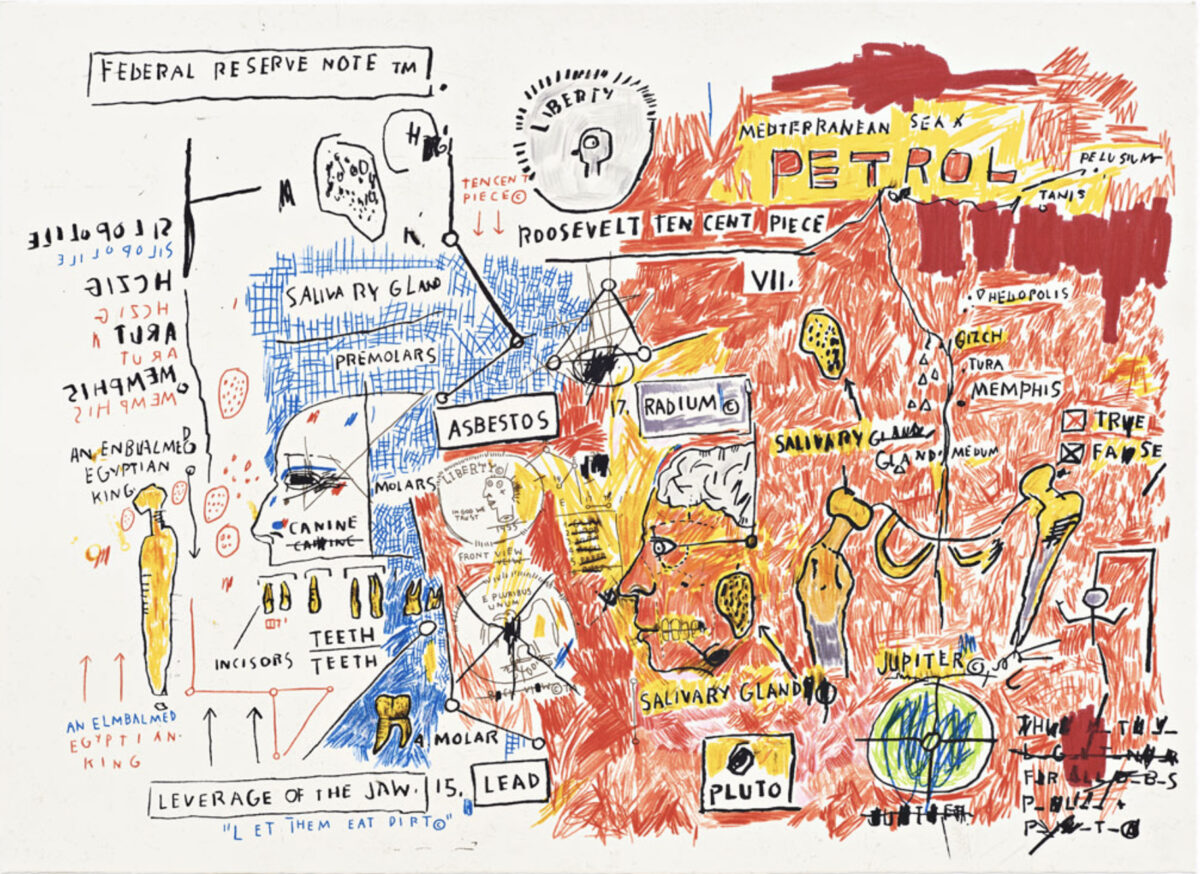 FEDERAL RESERVE NOTE TM
LIBERTY
MEDITERRANEAN SEA X
PETROL
PELUSIUM
TANIS
TEN CENT
PIECE ©
ROOSEVELT TEN CENT PIECE
K.
SILOPOLILE
SILOPOLILE
HCZIG
HCZIG
ARUT
ARUT
MEMPHIS
MEMPHIS
SALIVARY GLAND
VII.
HELIOPOLIS
GIZCH
TURA
MEMPHIS
PREMOLARS
ASBESTOS
17.
RADIUM ©
TRUE
FALSE
SALIVARY GLAND
GLAND.
MEDUM
AN ENBUALMED
EGYPTIAN
KING.
MOLARS
LIBERTY ©
IN GOD WE
TRUST
1955
FRONT VIEW
VIEW
CANINE
CANINE
E PLURIBUS
UNUM
BACK VIEW © TM
INCISORS
TEETH
TEETH
JUPITER ©
SALIVARY GLAND
AN ELMBALMED
EGYPTIAN.
KING
A MOLAR
LEVERAGE OF THE JAW.
15.
LEAD
PLUTO
JUPITER
"LET THEM EAT DIRT ©"